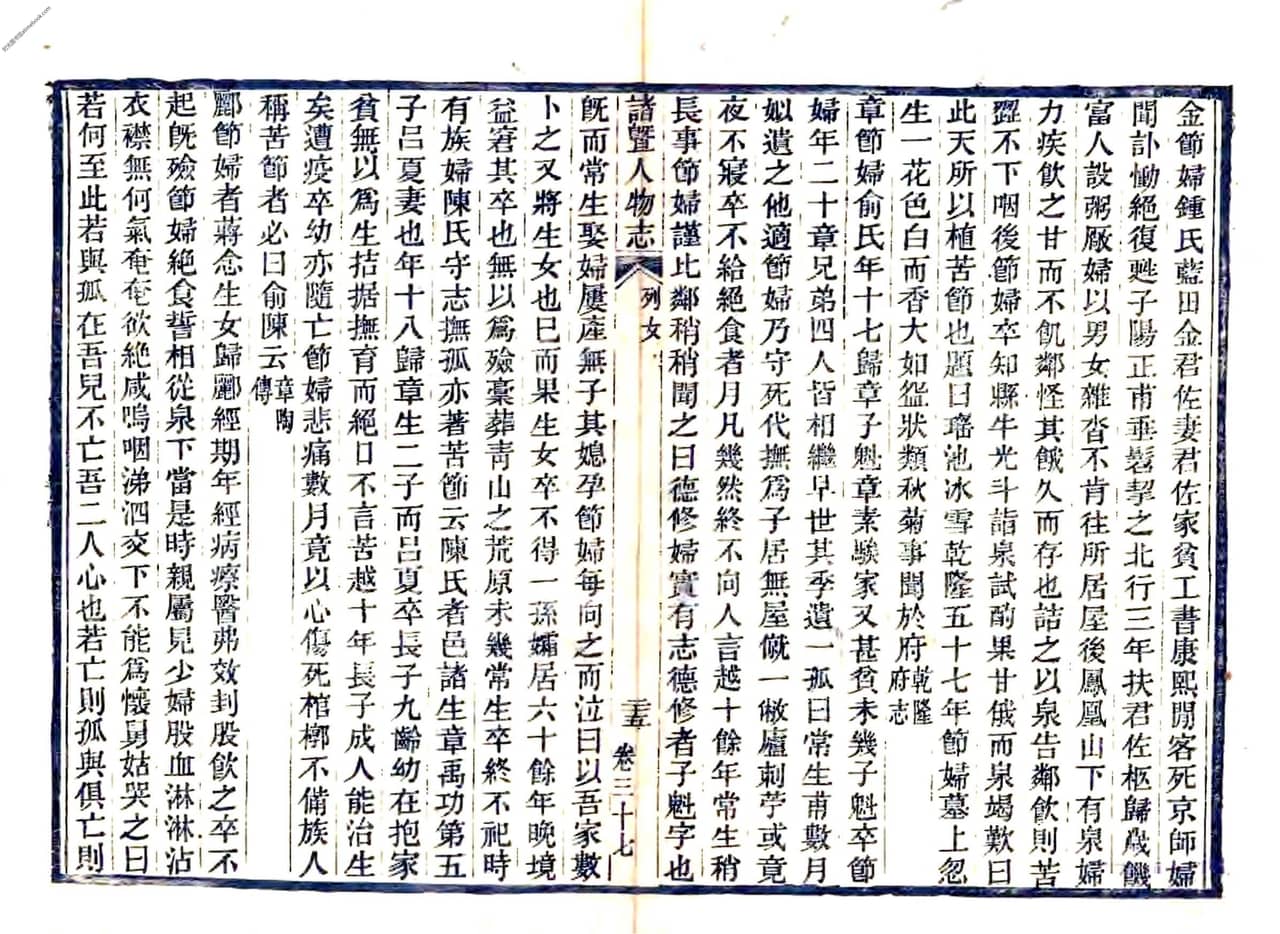 金節婦鍾氏藍田金君佐妻君佐家貧工書康熙閒客死京師婦
聞訃慟絕復甦子陽正甫垂髫挈之北行三年扶君佐柩歸歲饑
富人設粥厰婦以男女雜沓不肯往所居屋後鳳凰山下有泉婦
力疾飮之甘而不飢鄰怪其餓久而存也詰之以泉告鄰飮則苦
澀不下咽後節婦卒知縣牛光斗詣泉試酌果甘俄而泉竭歎曰
此天所以植苦節也題曰瑤池冰雪乾隆五十七年節婦墓上忽
生一花色白而香大如盌狀類秋菊事聞於府乾隆府志
章節婦俞氏年十七歸章子魁章素騃家又甚貧未幾子魁卒節
婦年二十章兄弟四人皆相繼早世其季遺一孤曰常生甫數月
姒遺之他適節婦乃守死代撫爲子居無屋僦一敝廬刺苧或竟
夜不寢卒不給絕食者月凡幾然終不向人言越十餘年常生稍
長事節婦謹比鄰稍稍聞之曰德修婦實有志德修者子魁字也
諸暨人物志 列女 三五 卷三十七
旣而常生娶婦屢產無子其媳孕節婦每向之而泣曰以吾家數
卜之又將生女也已而果生女卒不得一孫孀居六十餘年晚境
益窘其卒也無以爲殮稾葬靑山之荒原未幾常生卒終不祀時
有族婦陳氏守志撫孤亦著苦節云陳氏者邑諸生章禹功第五
子呂夏妻也年十八歸章生二子而呂夏卒長子九齡幼在抱家
貧無以爲生拮据撫育而絕口不言苦越十年長子成人能治生
矣遭疫卒幼亦隨亡節婦悲痛數月竟以心傷死棺槨不備族人
稱苦節者必曰俞陳云章陶傳
酈節婦者蔣念生女歸酈經期年經病瘵醫弗效刲股飮之卒不
起旣殮節婦絕食誓相從泉下當是時親屬見少婦股血淋淋沾
衣襟無何氣奄奄欲絕咸嗚咽涕泗交下不能爲懷舅姑哭之曰
若何至此若與孤在吾兒不亡吾二人心也若亡則孤與俱亡則